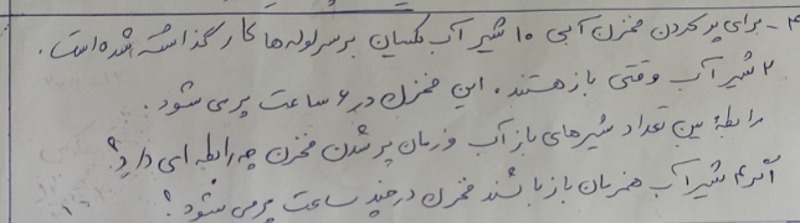 ۴- برای پر کردن مخزن آبی ۱۰ شیر آب یکسان بر سر لوله ها کار گذاشته شده است.
۲ شیر آب وقتی باز هستند، این مخزن در ۶ ساعت پر می شود.
رابطهٔ بین تعداد شیرهای باز آب و زمان پر شدن مخزن چه رابطه ای دارد؟
اگر ۴ شیر آب همزمان باز باشند مخزن در چند ساعت پر می شود؟